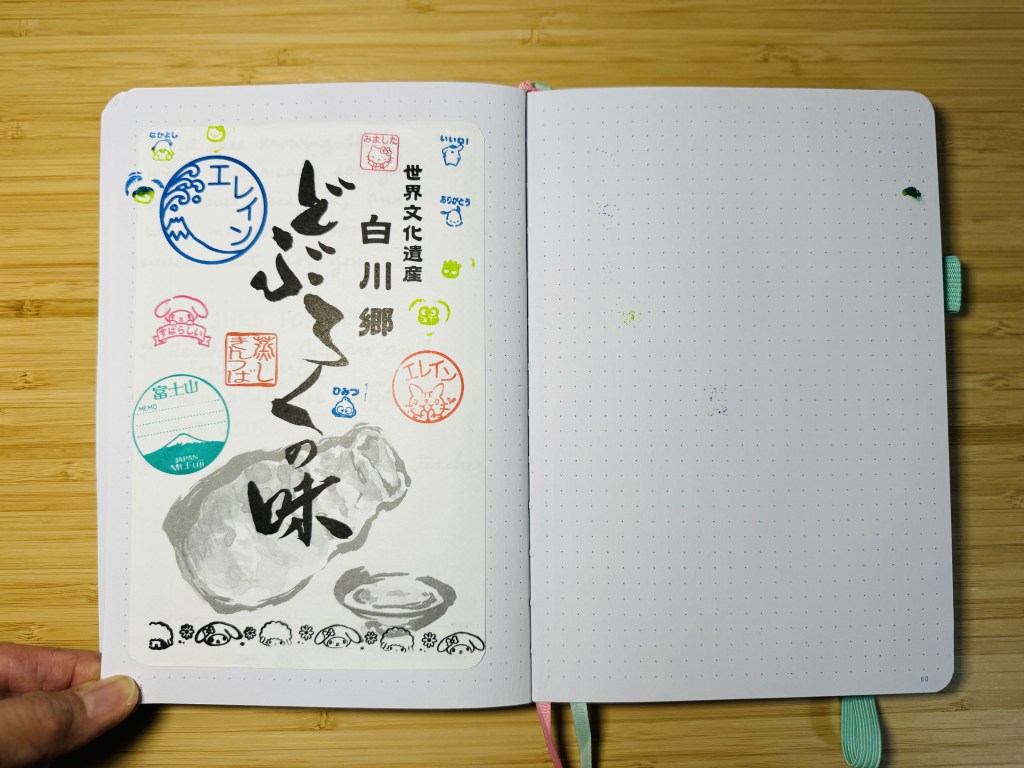 世界文化遺産
白川郷
どぶろくの味
なかよし
エレイン
みました
いいね!
ありがとう
すばらしい
蒸し
きんつば
ひみつ
エレイン
富士山
MEMO
JAPAN
Mt.Fuji
60